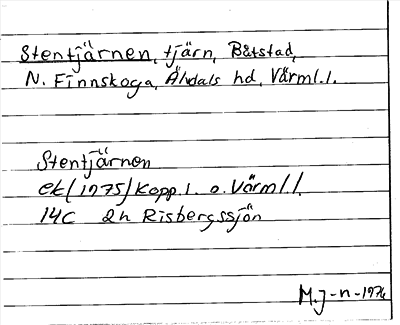 Stentjärnen, tjärn, Båtstad,
N. Finnskoga, Älvdals hd, Värml.l.
Stentjärnen
ek (1975) Kopp.l. o. Värml l.
14C 2h Risbergssjön
M.J-n-1976